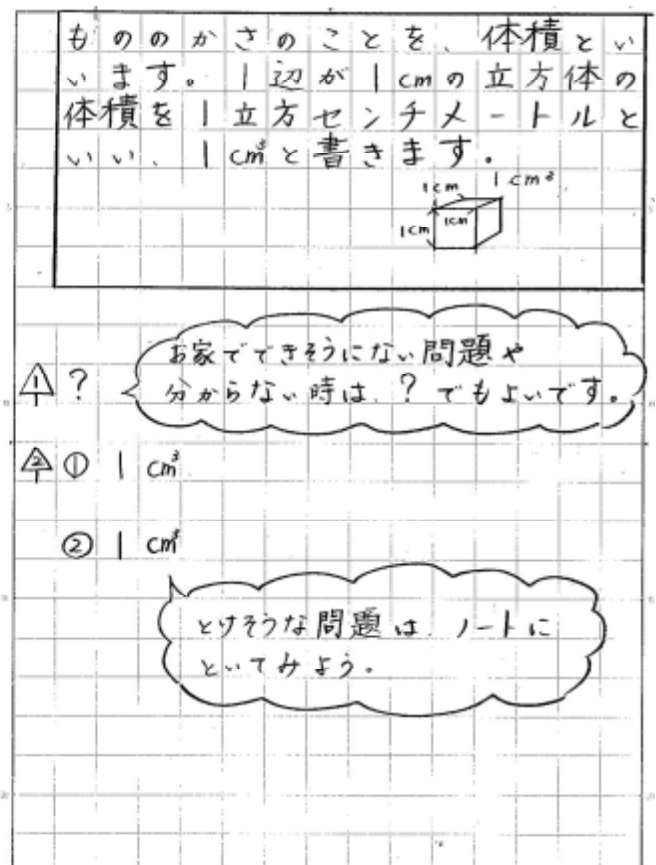 もののかさのことを、体積とい
います。1辺が1cmの立方体の
体積を1立方センチメートルと
いい、1cm³と書きます。
1cm 1cm³
1cm
1cm
お家でできそうにない問題や
1 ? 分からない時は、?でもよいです。
2 ① 1 cm³
② 1 cm³
とけそうな問題は、ノートに
といてみよう。